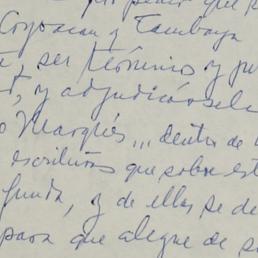 por pedir que
Coyoacan y Tacubaya
ser términos y ju
y adjudicósele
Marqués... dentro de
escrituras que sobre est
y de ellas se de
para que alegue de su